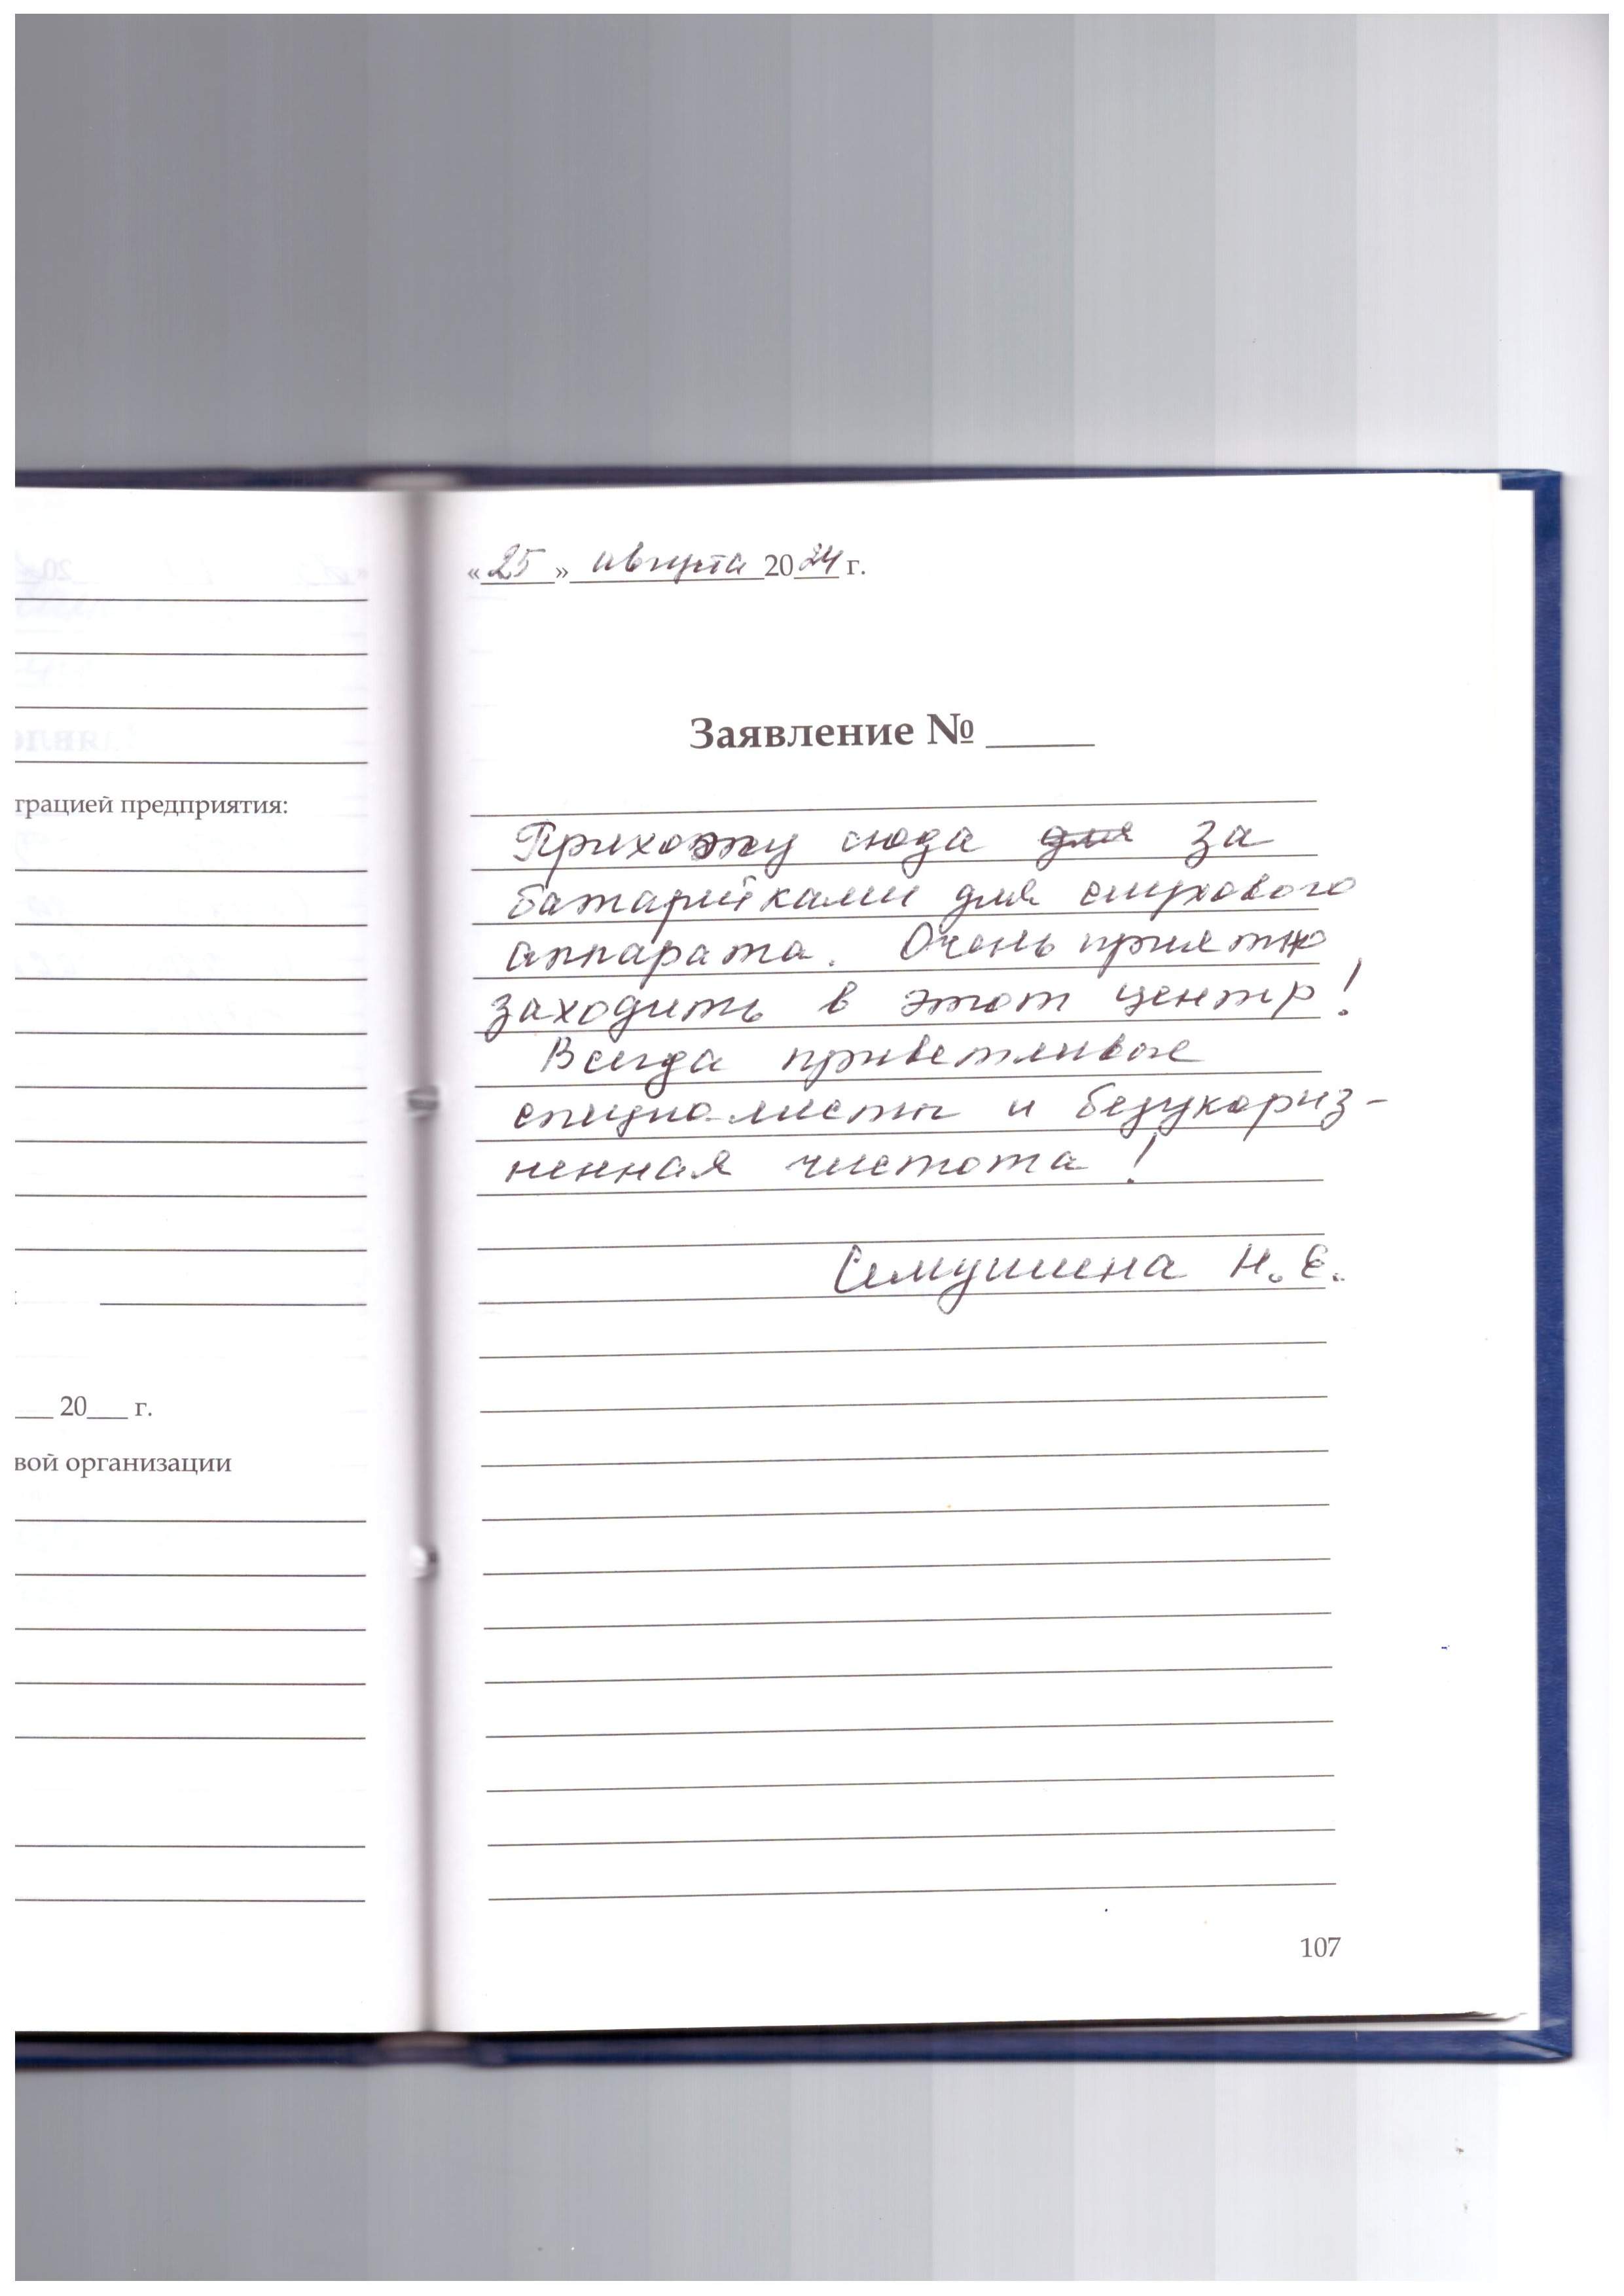 трацией предприятия:
20 г.
вой организации
«25» августа 2024 г.
Заявление №
Прихожу сюда для за
батарейками для слухового
аппарата. Очень приятно
заходить в этот центр!
Всегда приветливые
специалисты и безукориз-
ненная чистота!
Семушина Н.Е.
107